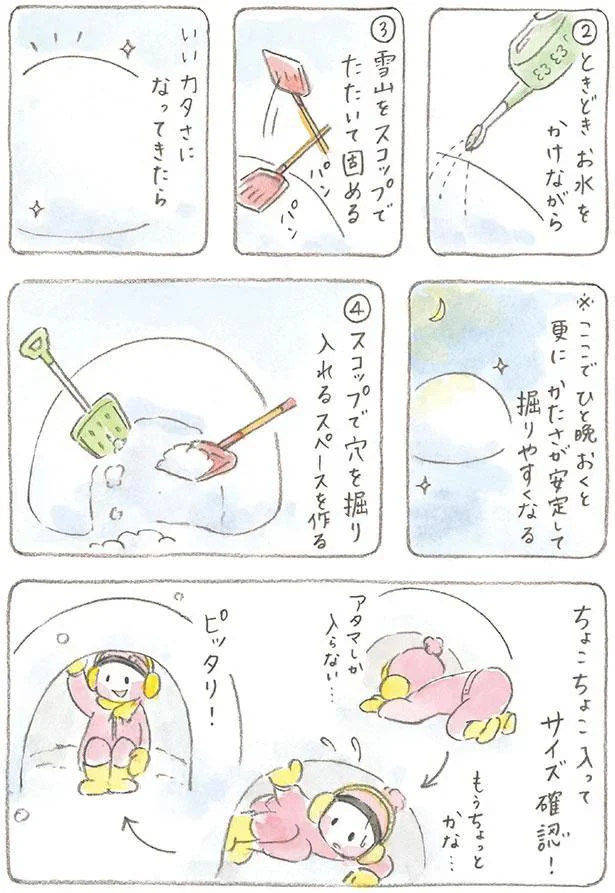 ②
ときどき お水を
かけながら
③
雪山をスコップで
たたいて固める
パン
パン
いいカタさに
なってきたら
※ここで ひと晩 おくと
更に かたさが安定して
掘りやすくなる
④
スコップで穴を掘り
入れるスペースを作る
ちょこちょこ入って
サイズ確認!
アタマしか
入らない…
もうちょっと
かな…
ピッタリ!